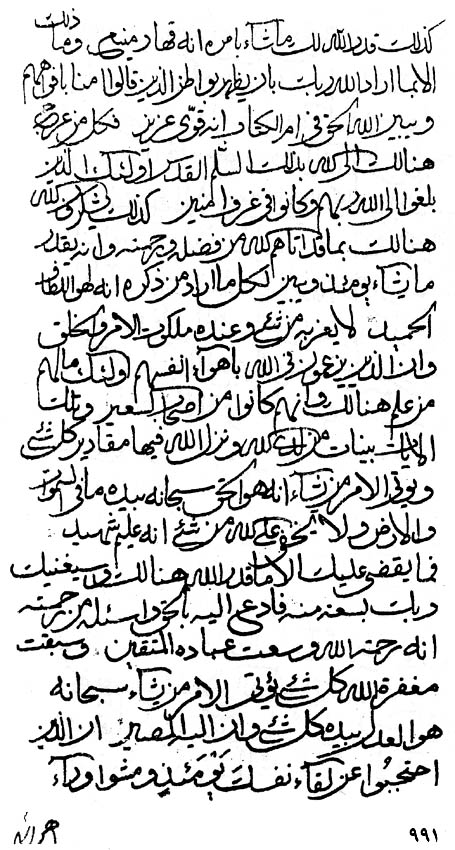 ذلك
كذلك قدر الله لك ما يشاء بامره انه قهار منيع وما
الا بما اراد الله ربك بان يظهر بواطن الذين قالوا امنا بافواههم
ويبين الله الحق في ام الكتاب انه قوي عزيز فكل من عرج
هنالك الى الله بذلك السلم القدير اولئك الذين
بلغوا الى الله ربهم وكانوا في غرف امنين كذلك الله
هنالك بما قد اتاهم الله من فضله ورحمته وانه يقدر
ما يشاء يومئذ ويبين لكل ما اراد من ذكره انه لهو
الحميد لا يعزب من شئ وعنده ملكوت الامر والخلق
وان الذين يدعون في الله باهواء انفسهم اولئك ما لهم
من علم هنالك وانهم كانوا من اصحاب السعير وتلك
الايات بينات من الله ونزل الله فيها مقادير كل شئ
ويؤتي الامر من يشاء انه هو الحق سبحانه بيده ما في السموات
والارض ولا يخفى على الله من شئ انه عليم شهيد
فما يقضى عليك الا ما قدر الله هنالك وسيغنيك
ربك بسعة منه فادع اليه بالحق واسئله من رحمته
انه رحمة الله وسعت عباده المتقين وسبقت
مغفرة الله كل شئ يؤتي الامر من يشاء سبحانه
هو العدل بيده كل شئ وان اليه المصير ان الذين
احتجبوا عن لقاء نفسك يومئذ ومشوا وراء
٩٩١